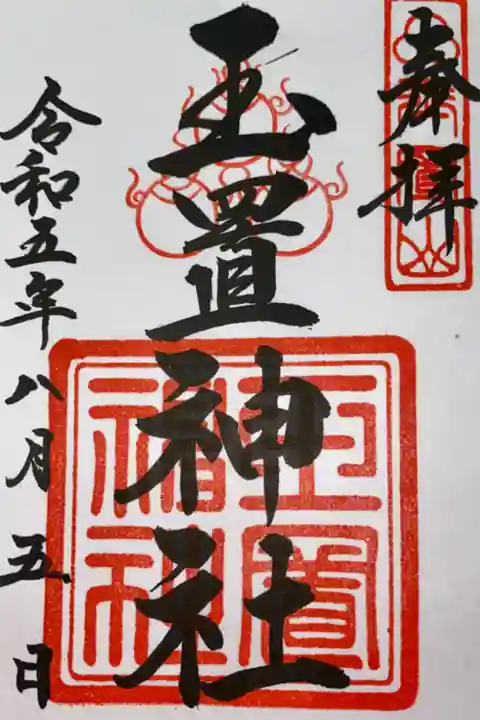 奉拝
玉置神社
令和五年八月五日
玉置神社